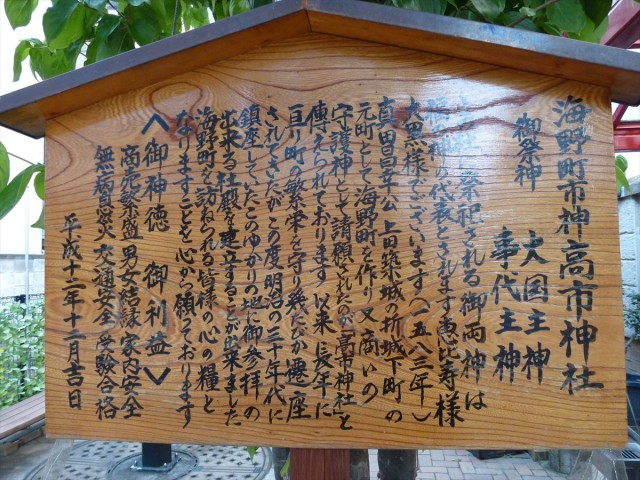 海野町市神高市神社
御祭神
大国主神
事代主神
祭祀される御両神は
福の神の代表とされます恵比寿様
大黒様でございます(一五八三年)
真田昌幸公上田築城の折城下町の
元町として海野町を作り又商いの
守護神として請願されたのが「高市神社」と
傳えられております 以来、長年に
亘り町の繁栄を守り幾たびか遷座
されてきたが この度明治の三十年代に
鎮座していたこのゆかりの地に御参拝の
出来る社殿を建立することが出来ました
海野町を訪ねられる皆様の心の糧と
なりますことを心から願っております
〈御神徳 御利益〉
商売繁盛 男女結縁 家内安全
無病息災 交通安全 受験合格
平成十二年十二月吉日